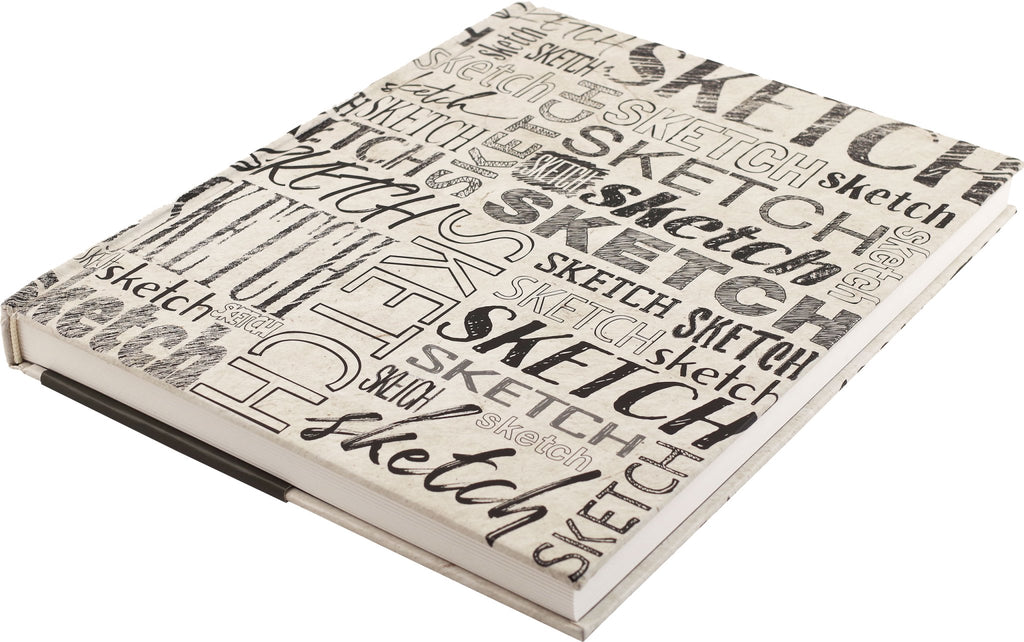 SKETCH
sketch
SKETCH
SKETCH
sketch
sketch
SKETCH
SKETCH
SKETCH
SKETCH
SKETCH
sketch
SKETCH
SKETCH
sketch
SKETCH
SKETCH
SKETCH
sketch
SKETCH
SKETCH
SKETCH
sketch
SKETCH
sketch
sketch
SKETCH
SKETCH
SKETCH
SKETCH
sketch
sketch
SKETCH